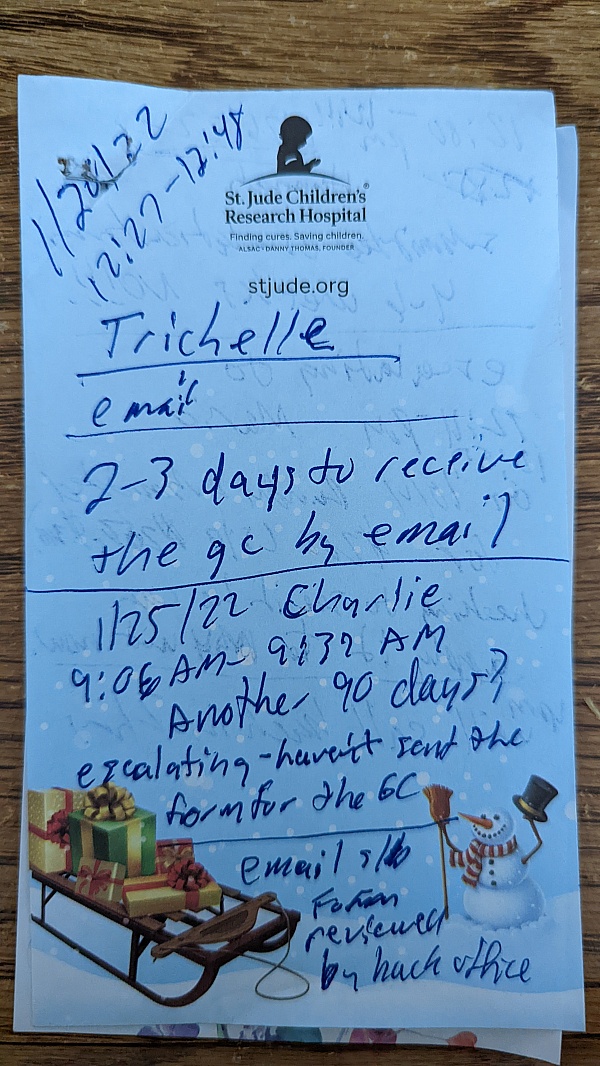 1/20/22
12:27-12:48
St. Jude Children's®
Research Hospital
Finding cures. Saving children.
ALSAC • DANNY THOMAS, FOUNDER
stjude.org
Trichelle
email
2-3 days to receive
the gc by email
1/25/22 Charlie
9:06 AM - 9:37 AM
Another 90 days?
escalating - haven't sent the
form for the GC
email s/b
Form
reviewed
by back office